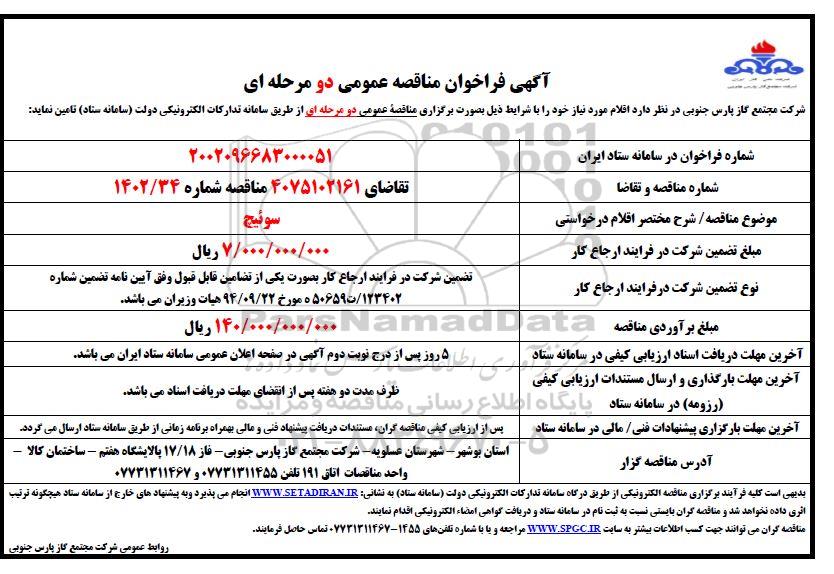 آگهی فراخوان مناقصه عمومی دو مرحله ای
شرکت مجتمع گاز پارس جنوبی در نظر دارد اقلام مورد نیاز خود را با شرایط ذیل بصورت برگزاری مناقصهٔ عمومی دو مرحله ای از طریق سامانه تدارکات الکترونیکی دولت (سامانه ستاد) تامین نماید:
شماره فراخوان در سامانه ستاد ایران ۲۰۰۲۰۹۶۶۸۳۰۰۰۰۵۱
شماره مناقصه و تقاضا تقاضای ۴۰۷۵۱۰۲۱۶۱ مناقصه شماره ۱۴۰۲/۳۴
موضوع مناقصه/ شرح مختصر اقلام درخواستی سوئیچ
مبلغ تضمین شرکت در فرایند ارجاع کار ۷/۰۰۰/۰۰۰/۰۰۰ ریال
نوع تضمین شرکت درفرایند ارجاع کار تضمین شرکت در فرایند ارجاع کار بصورت یکی از تضامین قابل قبول وفق آیین نامه تضمین شماره
۱۲۳۴۰۲/ت۵۰۶۵۹ ه مورخ ۹۴/۰۹/۲۲ هیات وزیران می باشد.
مبلغ برآوردی مناقصه ۱۴۰/۰۰۰/۰۰۰/۰۰۰ ریال
آخرین مهلت دریافت اسناد ارزیابی کیفی در سامانه ستاد ۵ روز پس از درج نوبت دوم آگهی در صفحه اعلان عمومی سامانه ستاد ایران می باشد.
آخرین مهلت بارگذاری و ارسال مستندات ارزیابی کیفی
(رزومه) در سامانه ستاد ظرف مدت دو هفته پس از انقضای مهلت دریافت اسناد می باشد.
آخرین مهلت بارگزاری پیشنهادات فنی/ مالی در سامانه ستاد پس از ارزیابی کیفی مناقصه گران، مستندات دریافت پیشنهاد فنی و مالی بهمراه برنامه زمانی از طریق سامانه ستاد ارسال می گردد.
آدرس مناقصه گزار استان بوشهر– شهرستان عسلویه – شرکت مجتمع گاز پارس جنوبی– فاز ۱۷/۱۸ پالایشگاه هفتم – ساختمان کالا –
واحد مناقصات اتاق ۱۹۱ تلفن ۰۷۷۳۱۳۱۱۴۵۵ و ۰۷۷۳۱۳۱۱۴۶۷
بدیهی است کلیه فرآیند برگزاری مناقصه الکترونیکی از طریق درگاه سامانه تدارکات الکترونیکی دولت (سامانه ستاد) به نشانی: WWW.SETADIRAN.IR انجام می پذیرد وبه پیشنهاد های خارج از سامانه ستاد هیچگونه ترتیب
اثری داده نخواهد شد و مناقصه گران بایستی نسبت به ثبت نام در سامانه ستاد و دریافت گواهی امضاء الکترونیکی اقدام نمایند.
مناقصه گران می توانند جهت کسب اطلاعات بیشتر به سایت WWW.SPGC.IR مراجعه و یا با شماره تلفن‌های ۱۴۵۵–۰۷۷۳۱۳۱۱۴۶۷ تماس حاصل فرمایند.
روابط عمومی شرکت مجتمع گاز پارس جنوبی
ParsNamadData
پایگاه اطلاع رسانی مناقصه و مزایده
۰۲۱–۸۸۳۴۹۶۷۰–۵